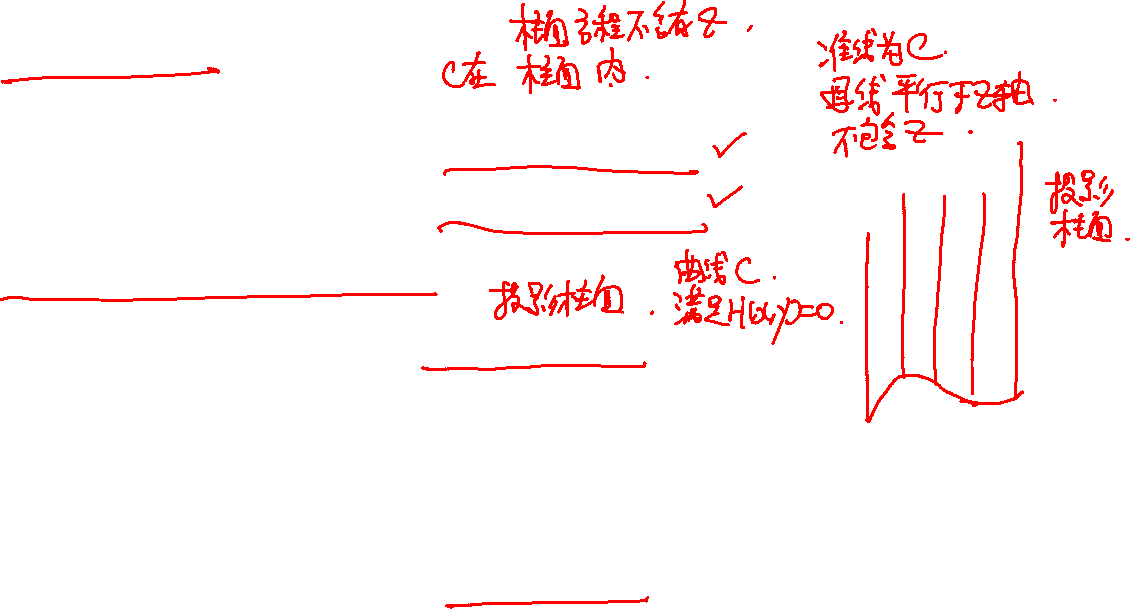 柱面方程不含有z.
C在 柱面内.
准线为C.
母线平行于z轴.
不包含z.
投影
柱面.
投影柱面.
曲线C.
满足H(x,y)=0.